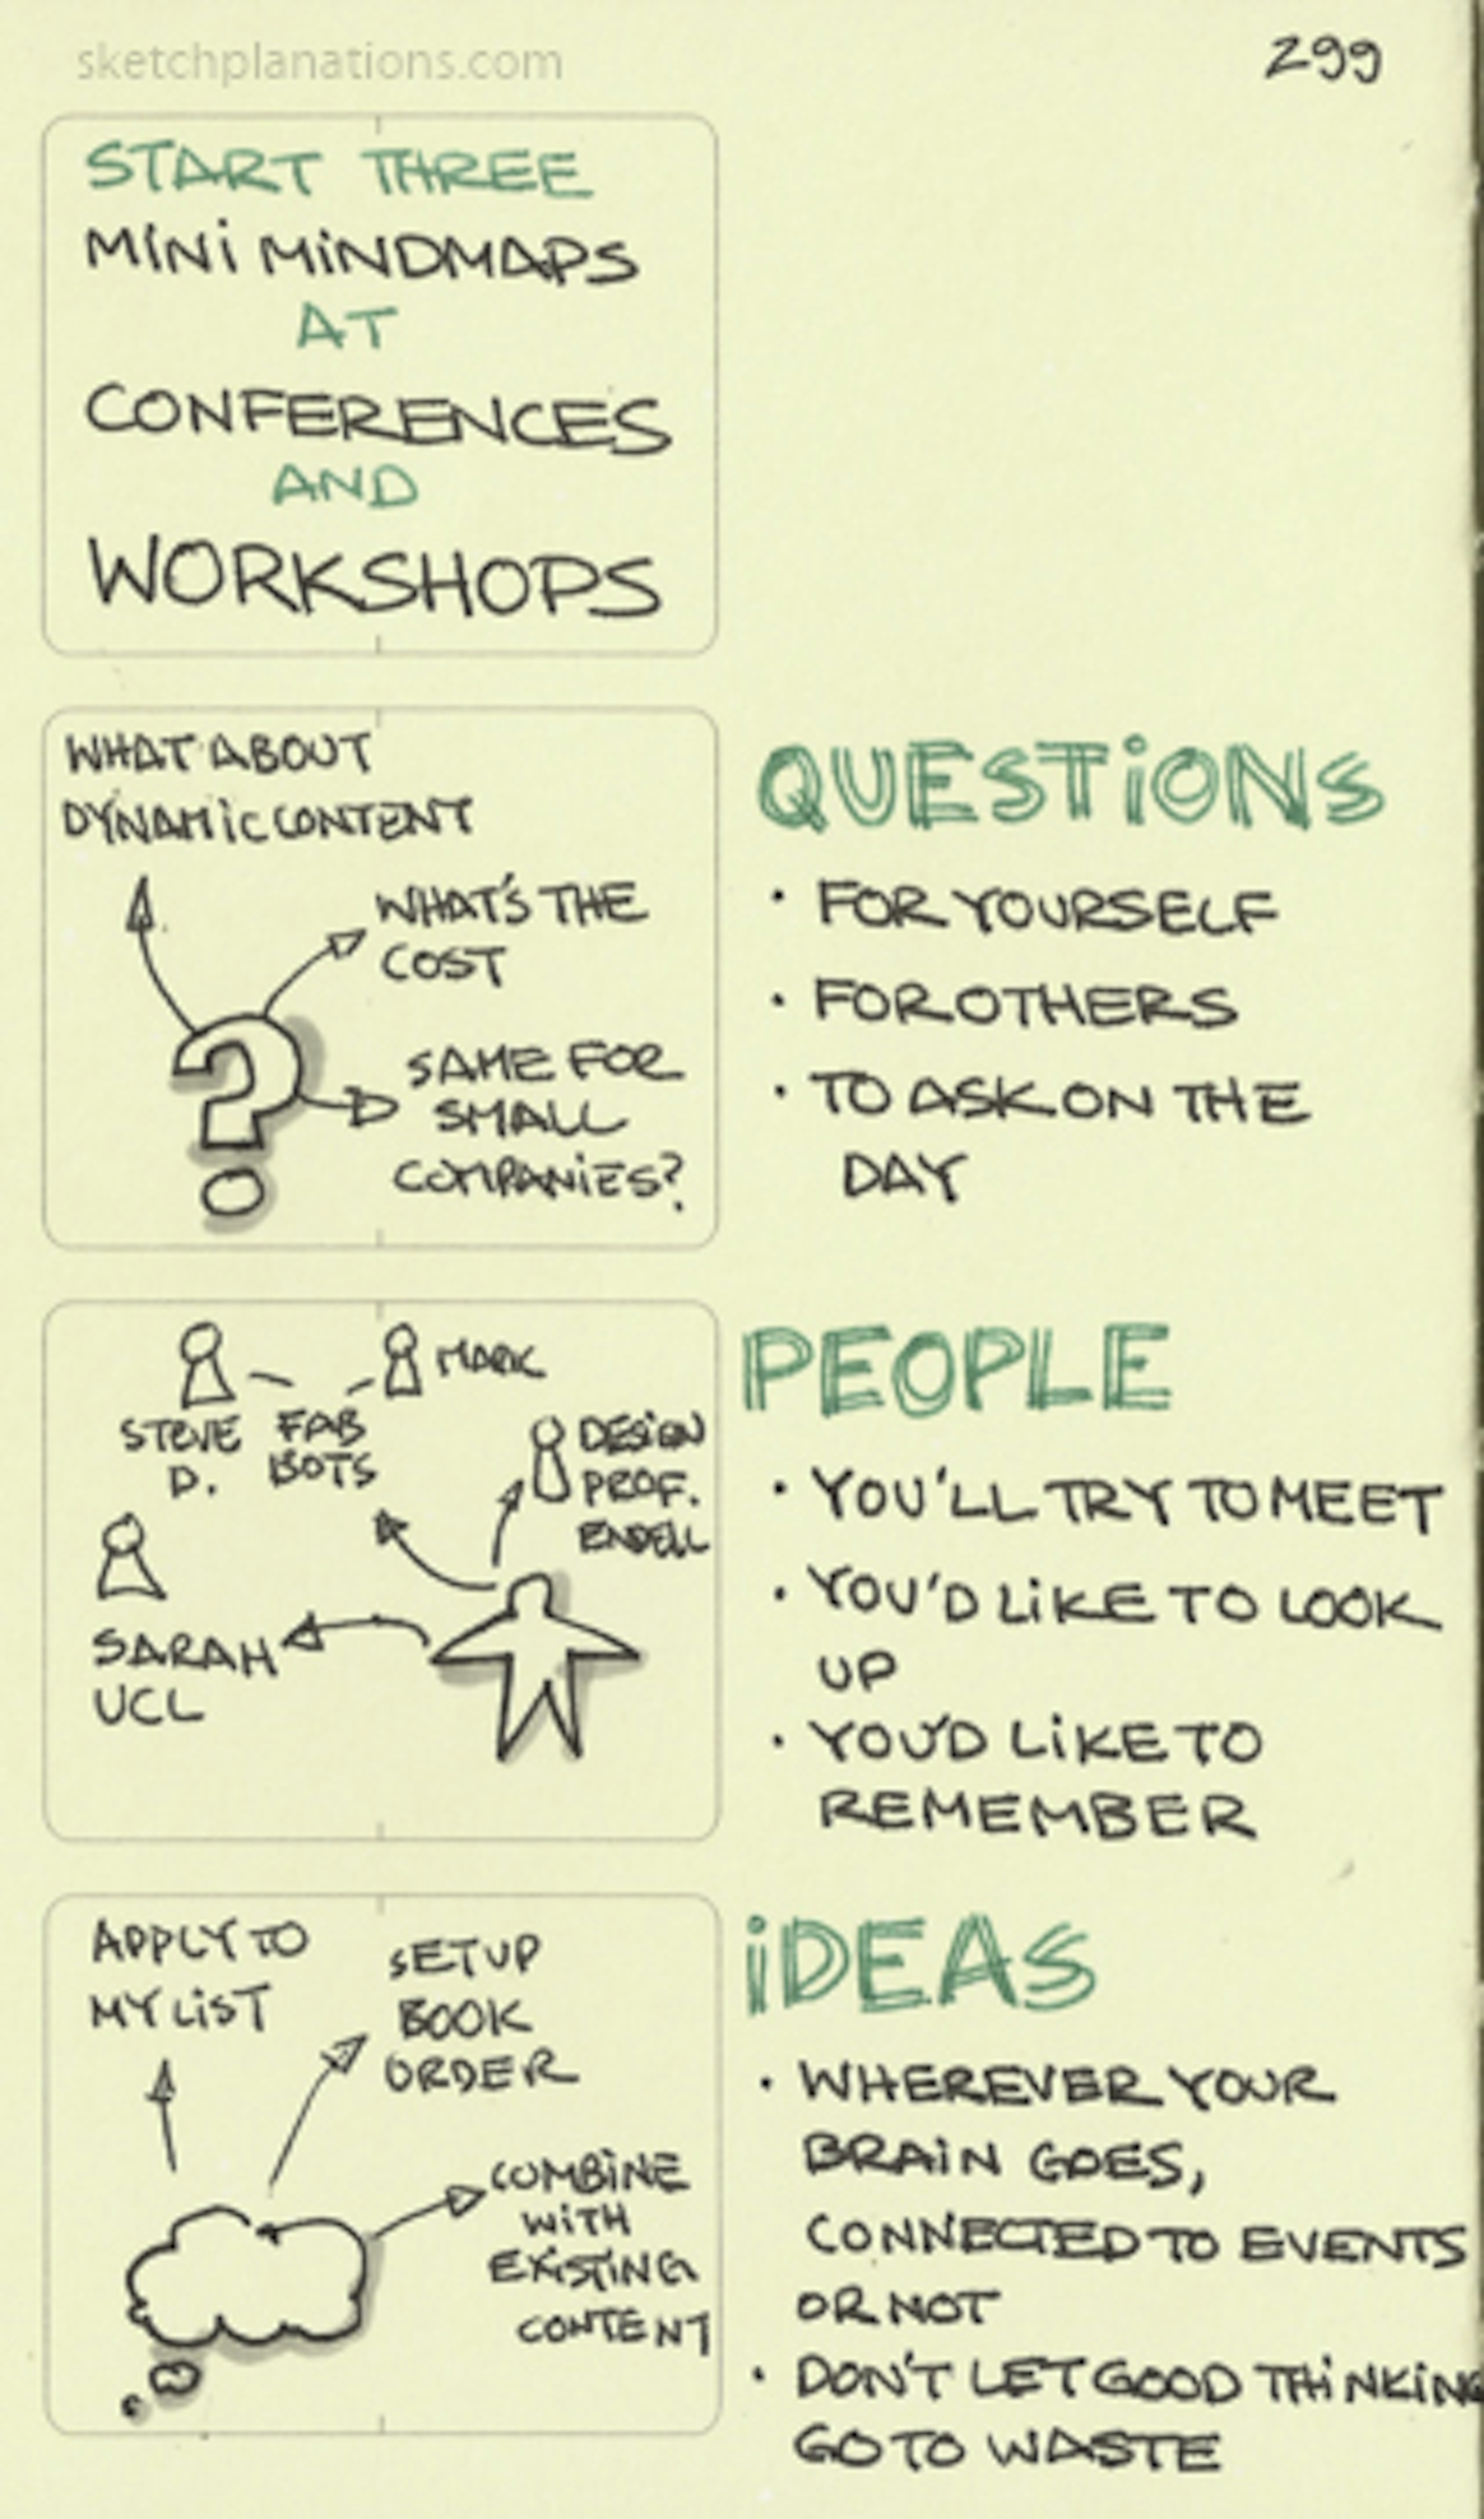 sketchplanations.com
299
START THREE
MINI MINDMAPS
AT
CONFERENCES
AND
WORKSHOPS
WHAT ABOUT
DYNAMIC CONTENT
WHAT'S THE
COST
SAME FOR
SMALL
COMPANIES?
QUESTIONS
• FOR YOURSELF
• FOR OTHERS
• TO ASK ON THE
DAY
STEVE
D.
FAB
BOTS
MARK
DESIGN
PROF.
ENDELL
SARAH
UCL
PEOPLE
• YOU'LL TRY TO MEET
• YOU'D LIKE TO LOOK
UP
• YOU'D LIKE TO
REMEMBER
APPLY TO
MY LIST
SETUP
BOOK
ORDER
COMBINE
WITH
EXISTING
CONTENT
IDEAS
• WHEREVER YOUR
BRAIN GOES,
CONNECTED TO EVENTS
OR NOT
• DON'T LET GOOD THINKING
GO TO WASTE